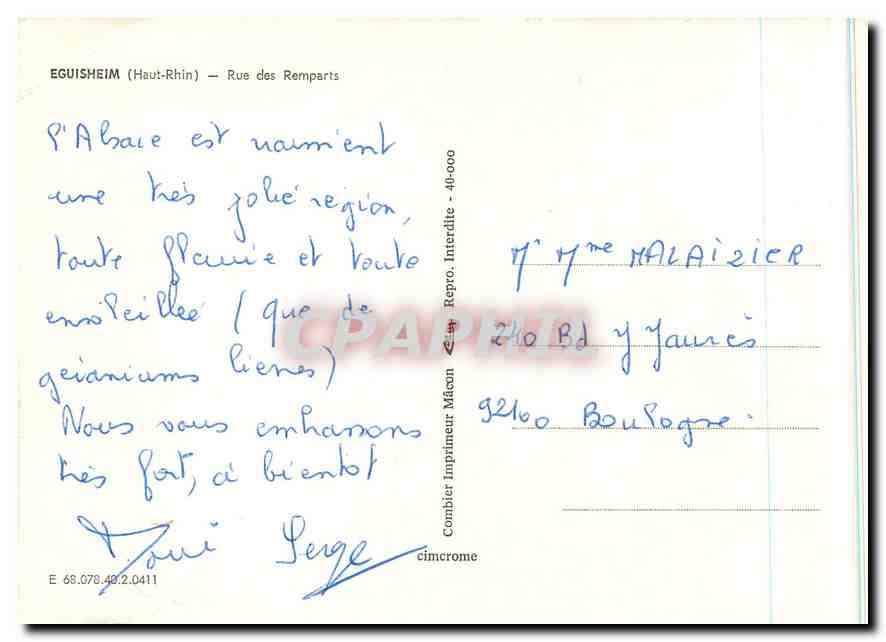 EGUISHEIM (Haut-Rhin) — Rue des Remparts
l'Alsace est vraiment
une très jolie région,
toute fleurie et toute
ensoleillée (que de
géraniums lierres)
Nous vous embrassons
très fort, à bientot
Serge
E 68.078.40.2.0411
Combier Imprimeur Mâcon Repro. Interdite - 40-000
cimcrome
CPAPHIL
Mr Mme MALAIZIER
240 Bd J Jaurès
92100 Boulogne.